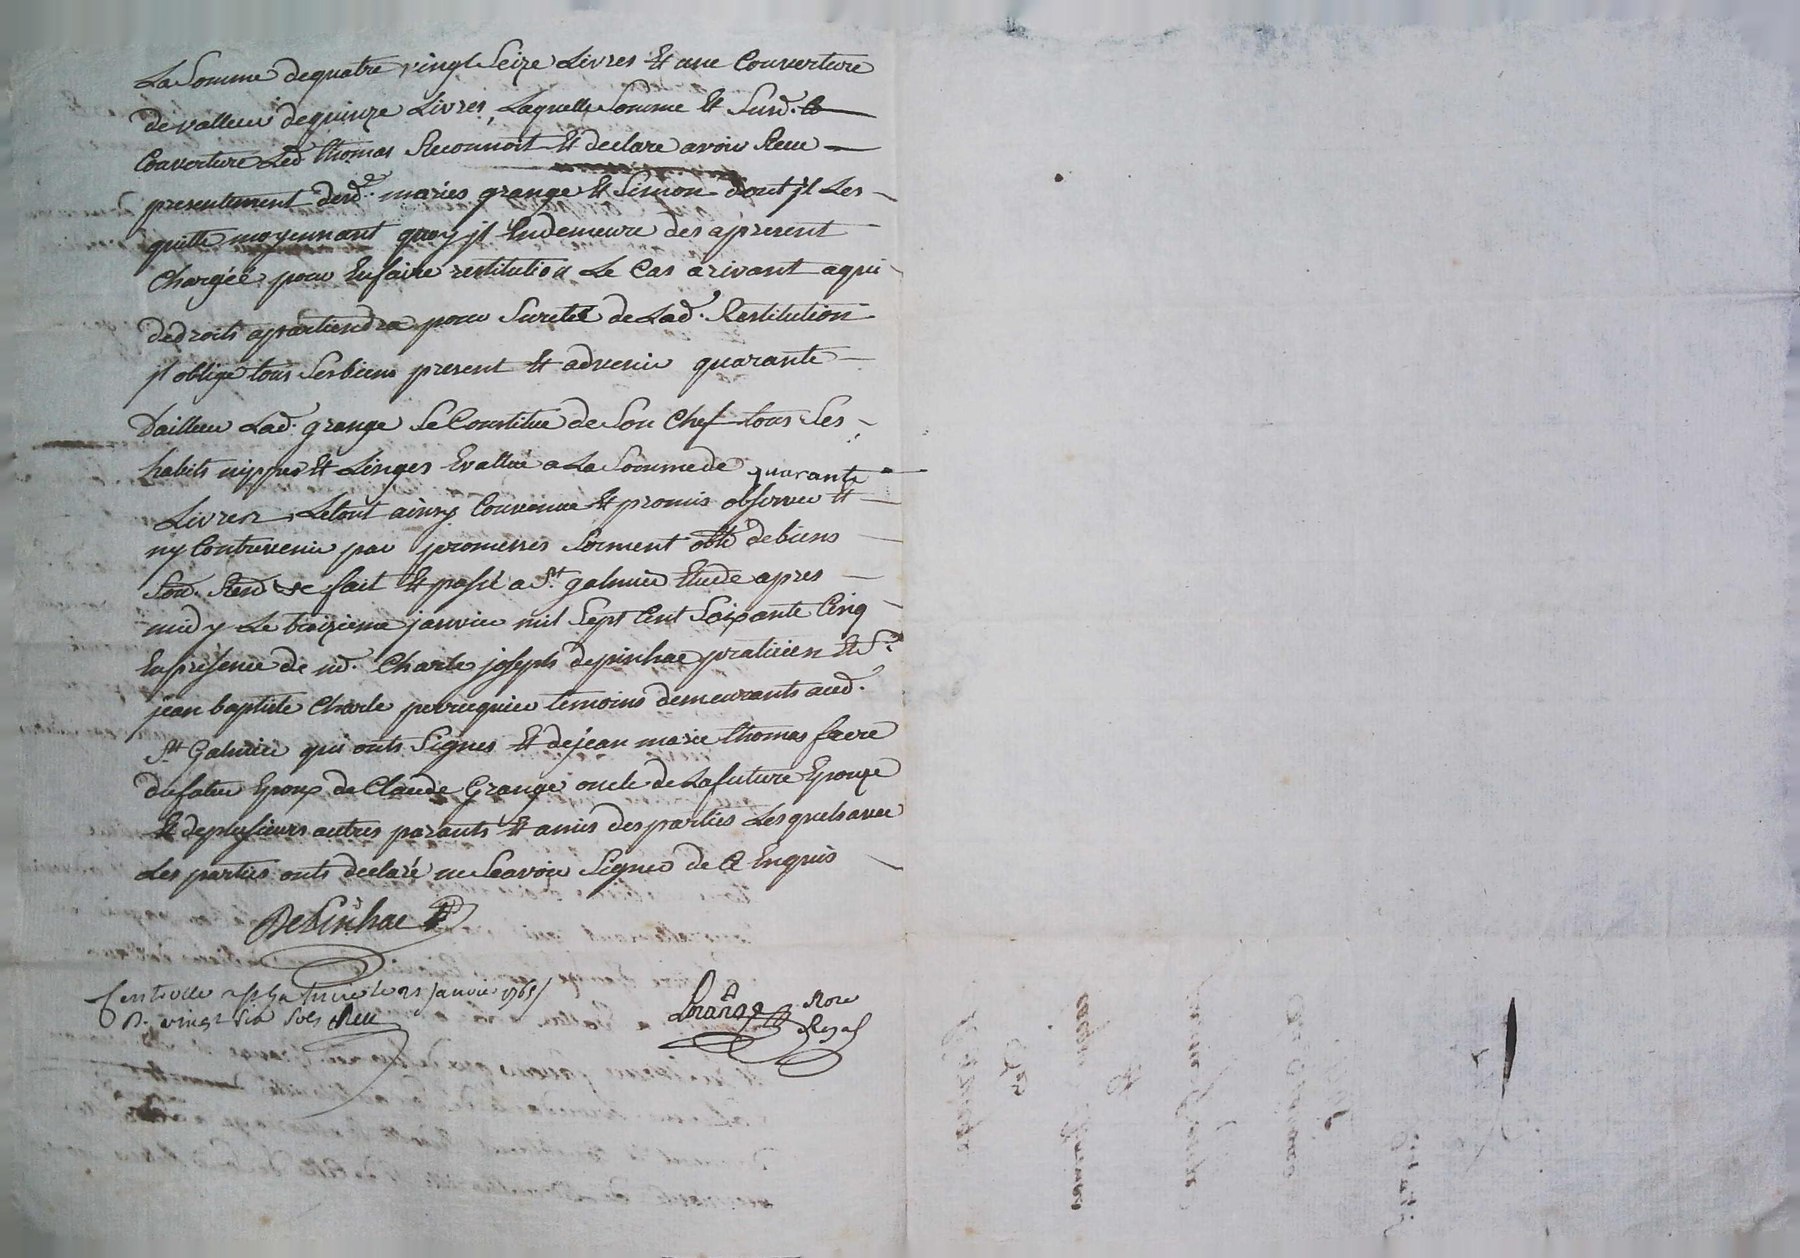 La Somme de quatre vingt Seize Livres Et une Couverture
de valleur de quinze Livres, Laquelle Somme Et Surd.
Couverture Led Thomas Reconnoit Et declare avoir Receu
presentement desd. maries grange Et Simon dont jl Les
quitte moyennant quoy jl Endemeure des apresent
Chargéé pour En faire restitution Le Cas arivant a qui
de droits apartiendra pour Sureté de Lad. Restitution
jl oblige tous Ses biens present Et advenir quarante
Dailleur Lad. grange Se Constitue de Son Chef tous Ses
habits nippes Et Linges Evallué a La Somme de quarante
Livres, Letout ainsy Convenue Et promis observer Et
ny Contrevenir par promesses Serment obl. de biens
Soud. Rend &c fait Et passé a St. galmier Etude apres
midy Le treizieme janvier mil Sept Cent Soixante Cinq
En presence de m. Charle joseph depinhac praticien Et Sr.
jean baptiste Charle perruquier temoins demeurants aud.
St Galmier qui onts Signes Et de jean marie thomas frere
du futur Epoux de Claude Grange oncle de La future Epouze
Et de plusieurs autres parants Et amis des parties Lesquels avec
Les parties onts declaré ne Scavoir Signer de Ce Enquis
DePinhac
Controllé a St Galmier le 21 Janvier 1765
R. vingt six sols Reu
Grange Nore
Royal